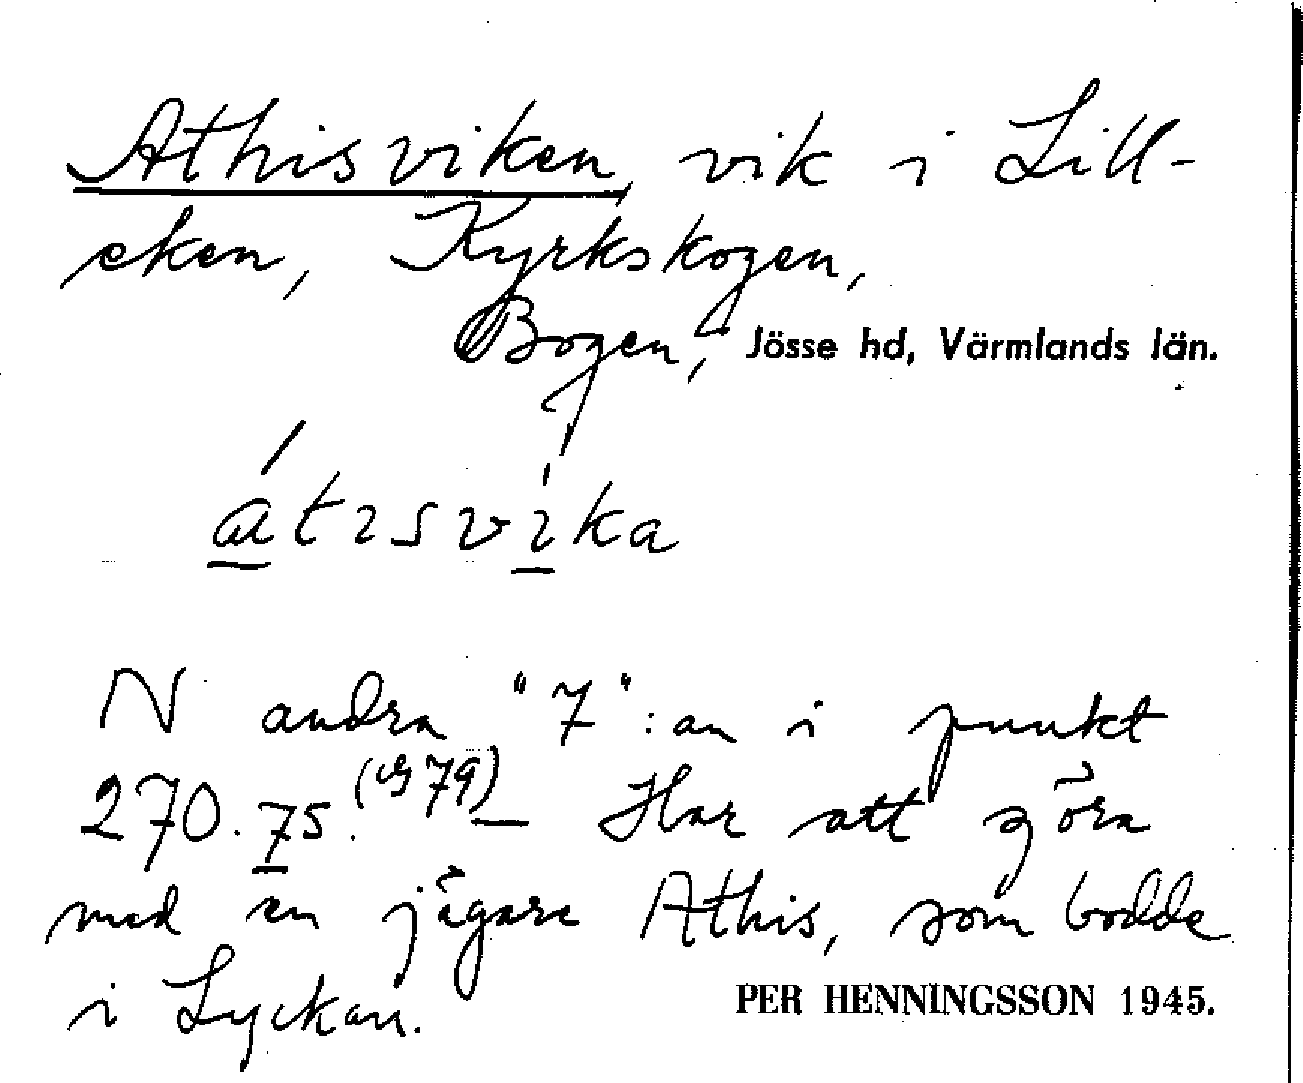 Athisviken, vik i Lill-
eken, Kyrkskogen,
Bogen, Jösse hd, Värmlands län.
átɪsvíka
N andra "7":an i punkt
270.75. (79) — Har att göra
med en jägare Athis, som bodde
i Lyckan.
PER HENNINGSSON 1945.